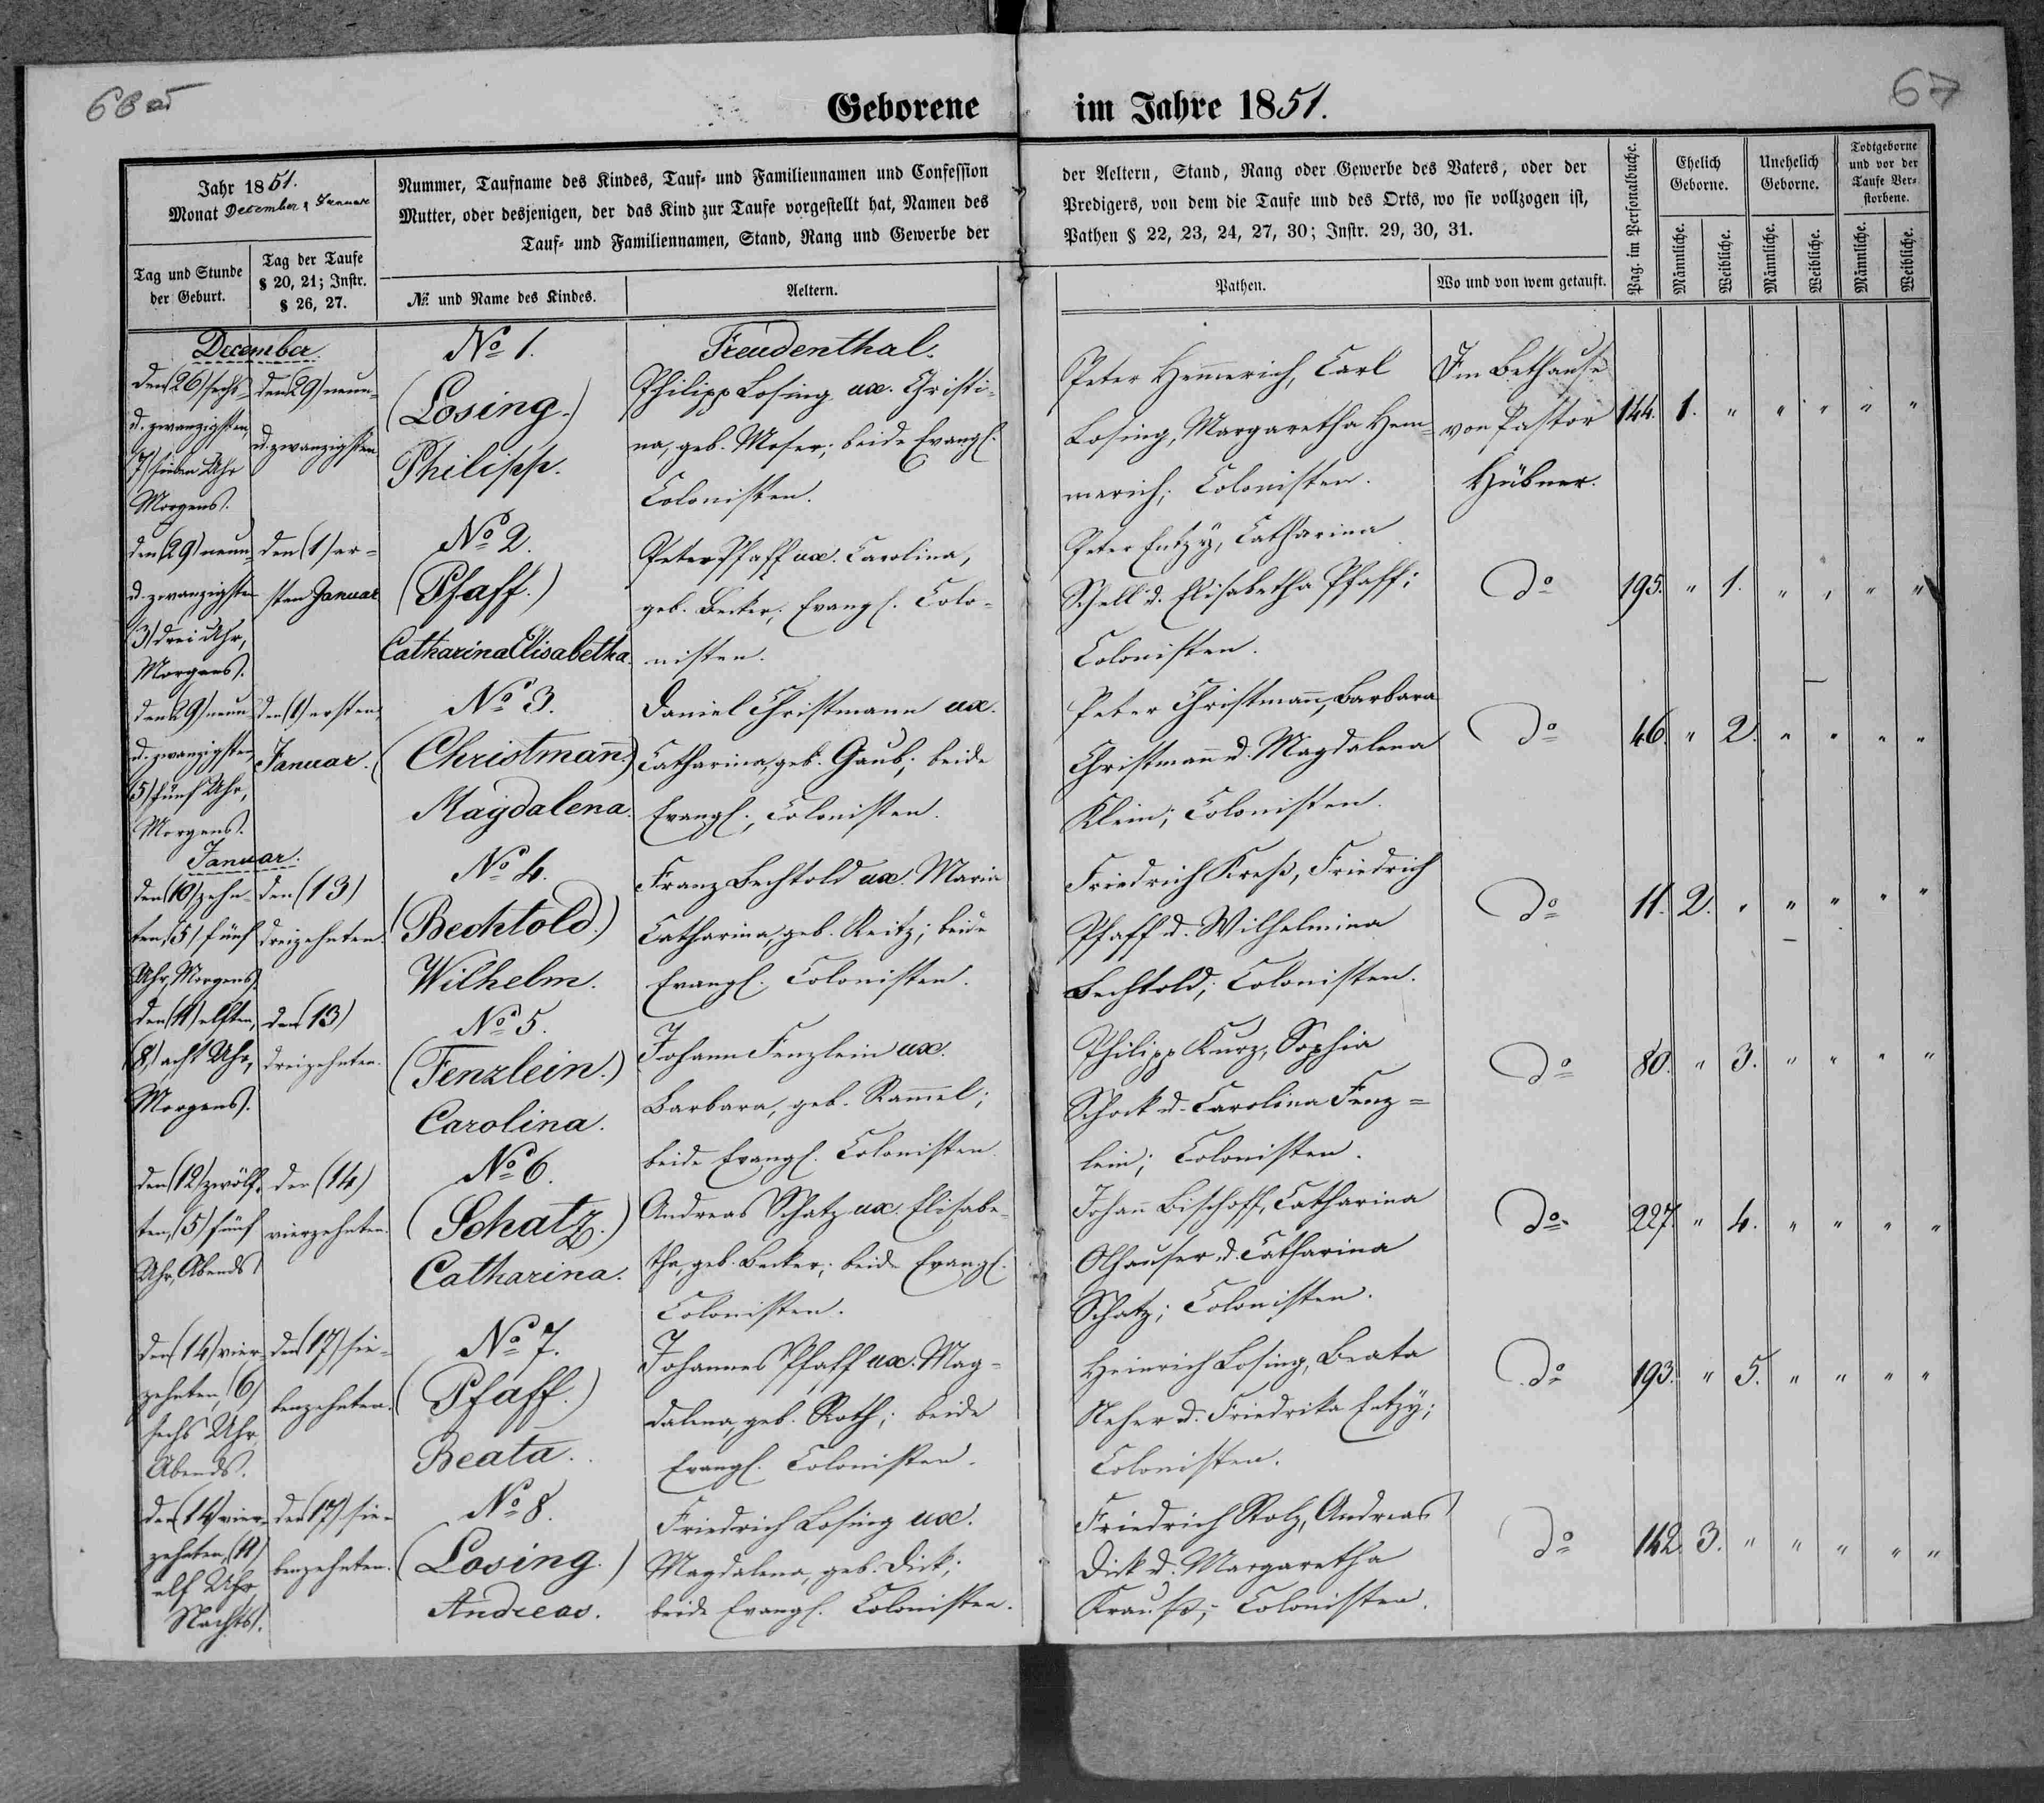 68 67
Geborene im Jahre 1851.
Jahr 1851.
Monat December & Januar
Nummer, Taufname des Kindes, Tauf- und Familiennamen und Confession
Mutter, oder desjenigen, der das Kind zur Taufe vorgestellt hat, Namen des
Tauf- und Familiennamen, Stand, Rang und Gewerbe der
der Aeltern, Stand, Rang oder Gewerbe des Vaters, oder der
Predigers, von dem die Taufe und des Orts, wo sie vollzogen ist,
Pathen § 22, 23, 24, 27, 30; Instr. 29, 30, 31.
Tag und Stunde
der Geburt.
Tag der Taufe
§ 20, 21; Instr.
§ 26, 27.
№ und Name des Kindes.
Aeltern.
Pathen.
Wo und von wem getauft.
Pag. im Personalbuche.
Ehelich
Geborne.
Unehelich
Geborne.
Todtgeborne
und vor der
Taufe Ver-
storbene.
Männliche.
Weibliche.
Männliche.
Weibliche.
Männliche.
Weibliche.
December.
den (26) sechs-
u. zwanzigsten,
(7) sieben Uhr
Morgens.
den (29) neun-
u. zwanzigsten
No 1.
(Losing.)
Philipp.
Freudenthal.
Philipp Losing ux. Christi-
na, geb. Moser; beide Evangl.
Colonisten.
Peter Hem̄erich, Carl
Losing, Margaretha Hem-
merich; Colonisten.
Im Bethause
von Pastor
Hübner.
144. 1. " " " " "
den (29) neun-
u. zwanzigsten
(3) drei Uhr,
Morgens.
den (1) er-
sten Januar
No 2.
(Pfaff.)
Catharina Elisabetha.
Peter Pfaff ux. Carolina,
geb. Becker; Evangl. Colo-
nisten.
Peter Entzy, Catharina
Schell u. Elisabetha Pfaff;
Colonisten.
do
195. " 1. " " " "
den (29) neun-
u. zwanzigsten,
(5) fünf Uhr,
Morgens.
den (1) ersten,
Januar.
No 3.
(Christman̄.)
Magdalena.
Daniel Christmann ux.
Catharina, geb. Gaub; beide
Evangl., Colonisten.
Peter Christman̄, Barbara
Christman̄ u. Magdalena
Klein; Colonisten.
do
46. " 2. " " " "
Januar.
den (10) zehn-
ten, (5) fünf
Uhr, Morgens.
den (13)
dreizehnten.
No 4.
(Bechtold.)
Wilhelm.
Franz Bechtold ux. Maria
Catharina, geb. Reitz; beide
Evangl. Colonisten.
Friedrich Kreß, Friedrich
Pfaff u. Wilhelmina
Bechtold; Colonisten.
do
11. 2. " " " " "
den (11) elften,
(8) acht Uhr,
Morgens.
den (13)
dreizehnten.
No 5.
(Fenzlein.)
Carolina.
Johann Fenzlein ux.
Barbara, geb. Ram̄el;
beide Evangl. Colonisten.
Philipp Kurz, Sophia
Schock u. Carolina Fenz-
lein; Colonisten.
do
80. " 3. " " " "
den (12) zwölf-
ten, (5) fünf
Uhr, Abends
den (14)
vierzehnten.
No 6.
(Schatz.)
Catharina.
Andreas Schatz ux. Elisabe-
tha, geb. Becker; beide Evangl.
Colonisten.
Johan̄ Bischoff, Catharina
Olhauser u. Catharina
Schatz; Colonisten.
do
227. " 4. " " " "
den (14) vier-
zehnten, (6)
sechs Uhr,
Abends.
den (17) sie-
benzehnten.
No 7.
(Pfaff.)
Beata.
Johannes Pfaff ux. Mag-
dalena, geb. Roth; beide
Evangl. Colonisten.
Heinrich Losing, Beata
Neher u. Friedrika Entzy;
Colonisten.
do
193. " 5. " " " "
den (14) vier-
zehnten, (11)
elf Uhr,
Nachts.
den (17) sie-
benzehnten.
No 8.
(Losing.)
Andreas.
Friedrich Losing ux.
Magdalena, geb. Dick;
beide Evangl. Colonisten.
Friedrich Stolz, Andreas
Dick u. Margaretha
Krauß; Colonisten.
do
142. 3. " " " " "